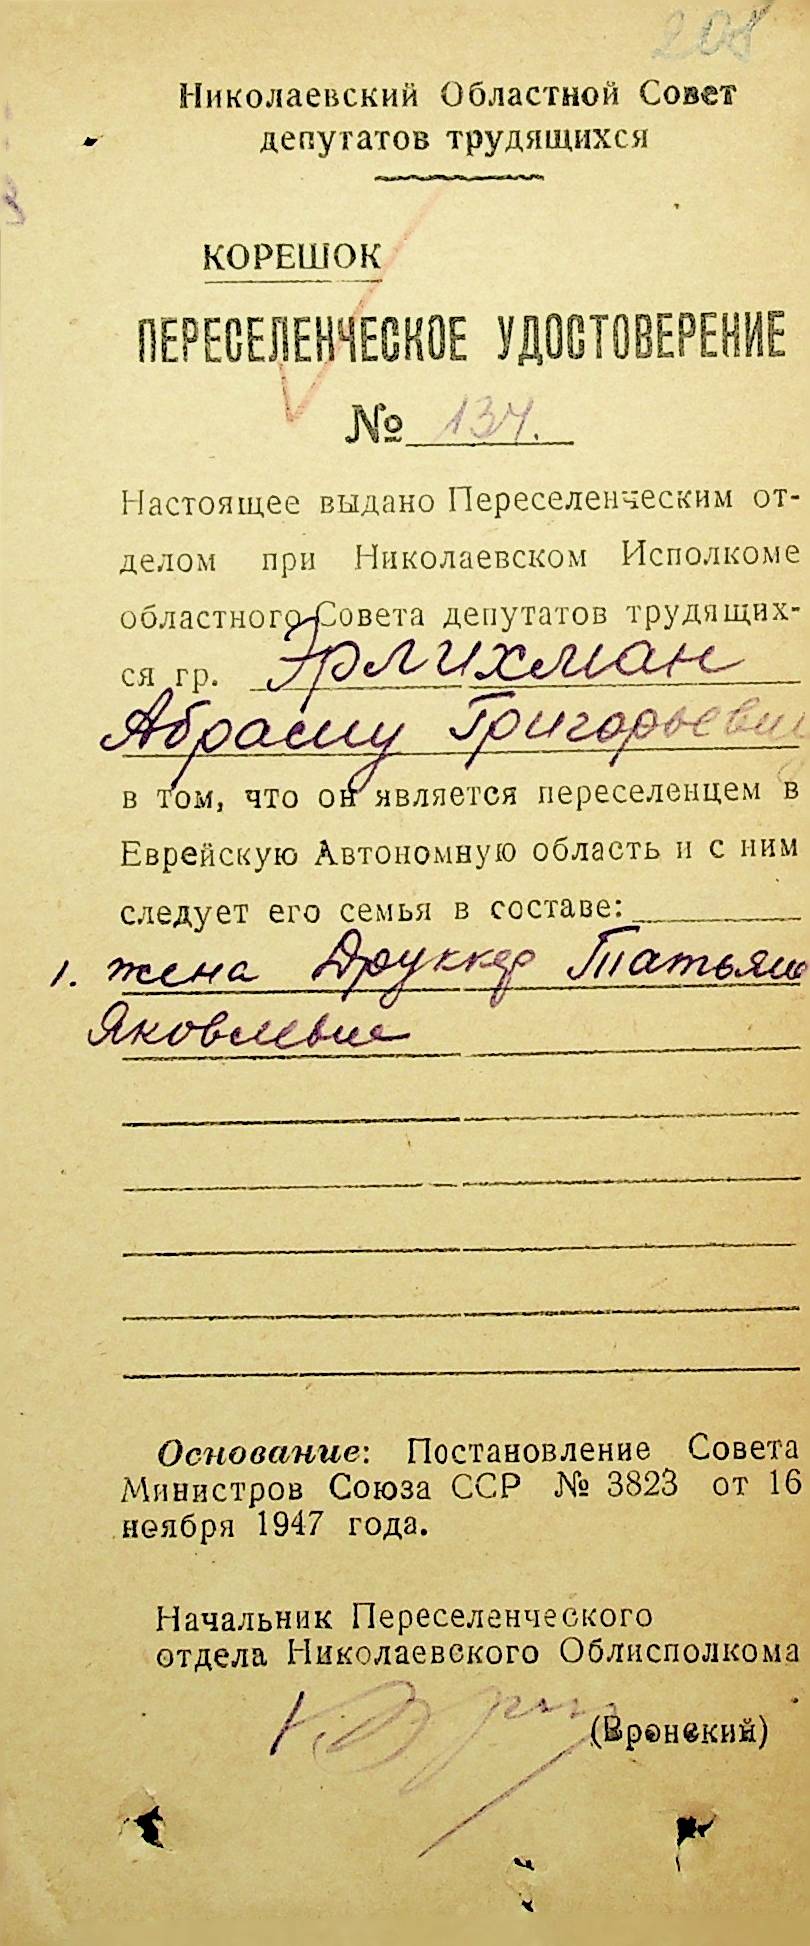 208
Николаевский Областной Совет
депутатов трудящихся
КОРЕШОК
ПЕРЕСЕЛЕНЧЕСКОЕ УДОСТОВЕРЕНИЕ
№ 134.
Настоящее выдано Переселенческим от-
делом при Николаевском Исполкоме
областного Совета депутатов трудящих-
ся гр. Эрлихман
Абраму Григорьевичу
в том, что он является переселенцем в
Еврейскую Автономную область и с ним
следует его семья в составе:
1. жена Друккер Татьяна
Яковлевна
Основание: Постановление Совета
Министров Союза ССР № 3823 от 16
ноября 1947 года.
Начальник Переселенческого
отдела Николаевского Облисполкома
(Вронский)